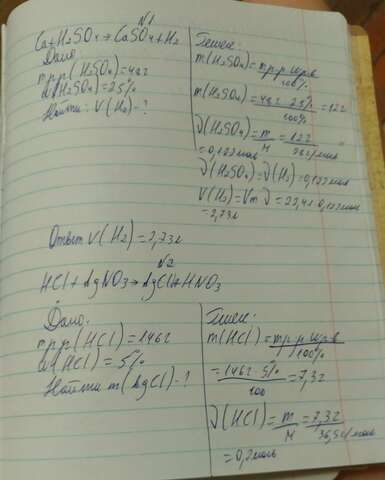 №1
Ca+H2SO4→CaSO4+H2
Дано:
mрр(H2SO4)=48г
ω(H2SO4)=25%
Найти: V(H2)-?
Решен:
m(H2SO4)=mрр·ωрв/100%
m(H2SO4)=48г·25%/100%=12г
ν(H2SO4)=m/M=12г/98г/моль
=0,122моль
ν(H2SO4)=ν(H2)=0,122моль
V(H2)=Vm·ν=22,4·0,122моль
=2,73л
Ответ V(H2)=2,73л
№2
HCl+AgNO3→AgCl+HNO3
Дано:
mрр(HCl)=146г
ω(HCl)=5%
Найти m(AgCl)-?
Решен:
m(HCl)=mрр·ωрв/100%
=146г·5%/100=7,3г
ν(HCl)=m/M=7,3г/36,5г/моль
=0,2моль